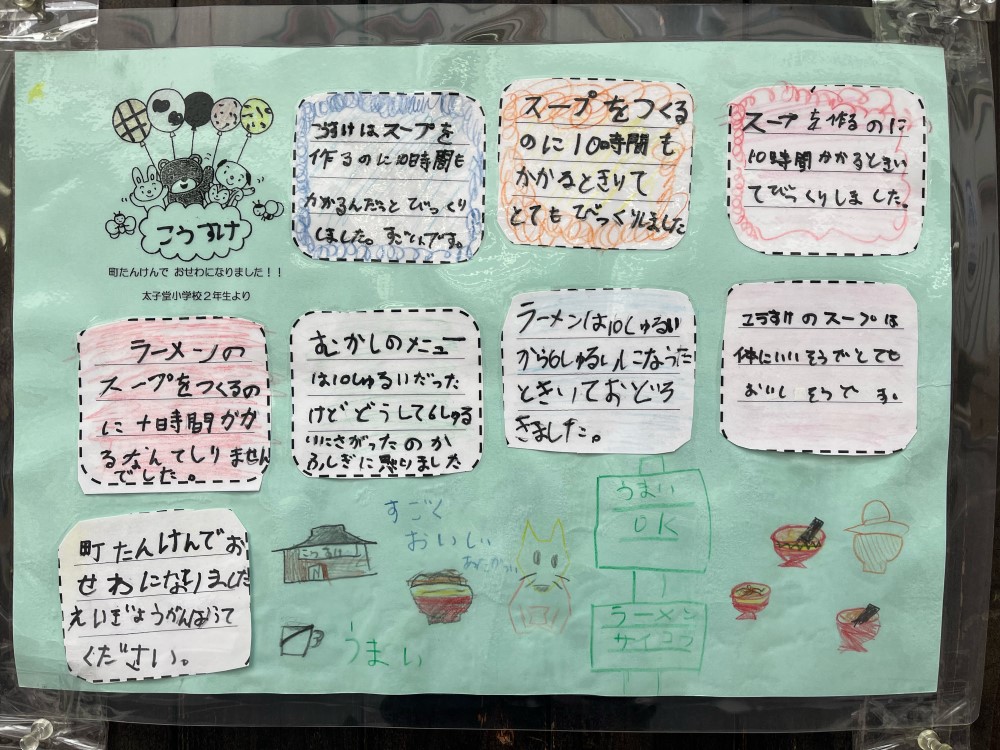 こうすけ
町たんけんで おせわになりました！！
太子堂小学校２年生より
こうすけはスープを
作るのに10時間も
かかるんだっとびっくり
しました。すごいです。
スープをつくる
のに10時間も
かかるときいて
とてもびっくりしました
スープを作るのに
10時間かかるときい
てびっくりしました。
ラーメンの
スープをつくるの
に十時間がか
るなんてしりません
でした。
むかしのメニュー
は10しゅるいだった
けどどうして6しゅる
いにさがったのか
ふしぎに思いました
ラーメンは10しゅるい
から6しゅるいになった
ときいておどろ
きました。
こうすけのスープは
体にいいそうでとても
おいしそうです。
町たんけんでお
せわになりました
えいぎょうがんばって
ください。
こうすけ
すごく
おいしい
うまい
うまい
OK
ラーメン
サイコウ